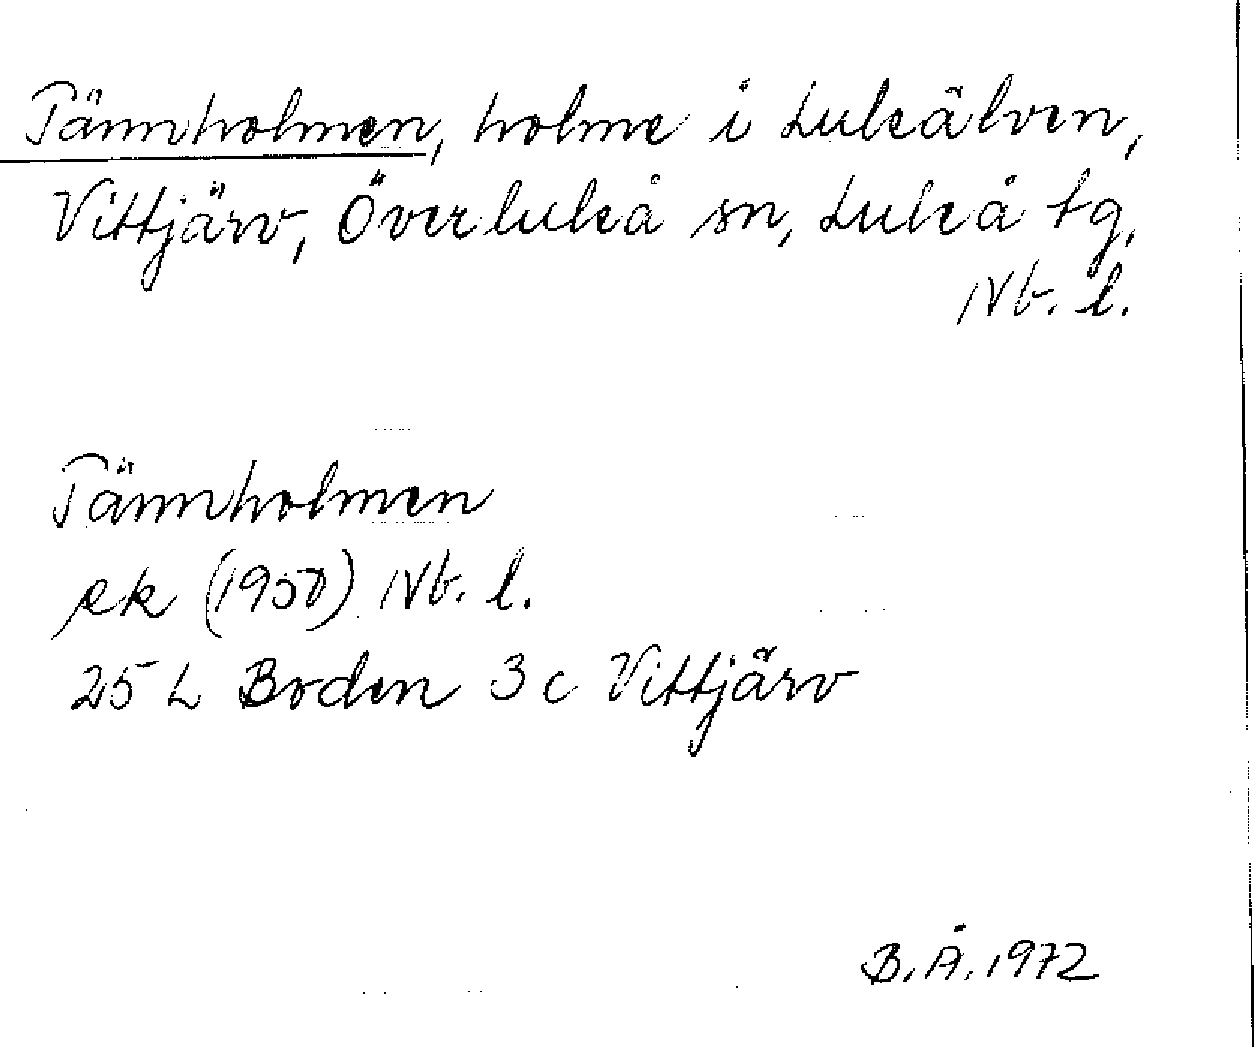 Tännholmen, holme i Luleälven,
Vittjärv, Överluleå sn, Luleå tg,
Nb. l.
Tännholmen
ek (1950) Nb. l.
25 L Boden 3 c Vittjärv
B. Å. 1972